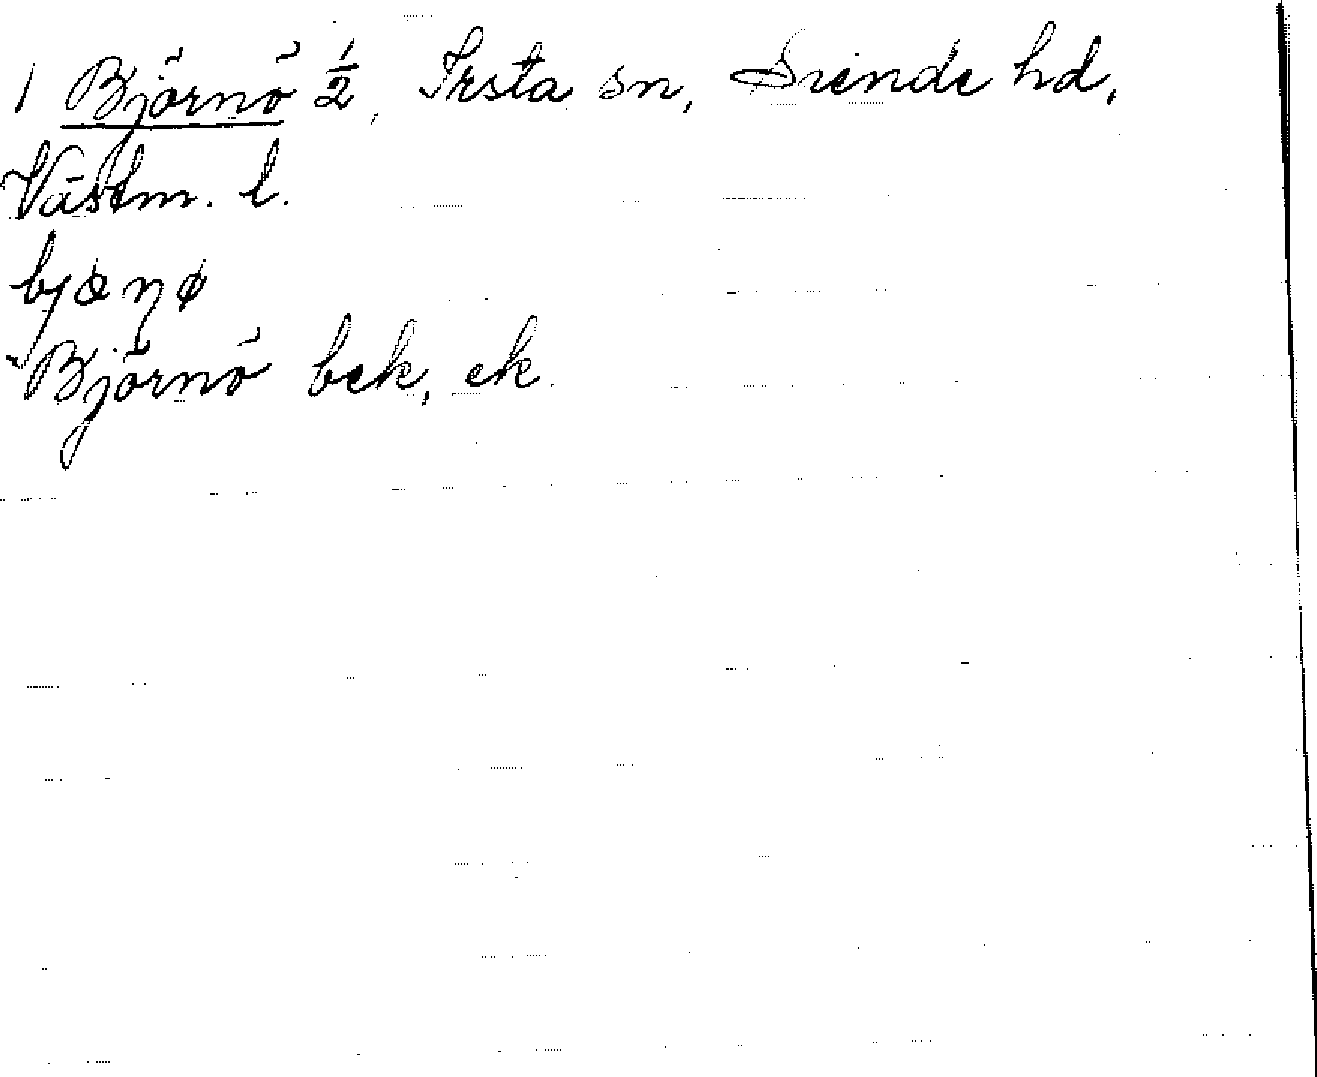 1 Björnö ½, Irsta sn, Siende hd,
Västm. l.
Björnö bek, ek.